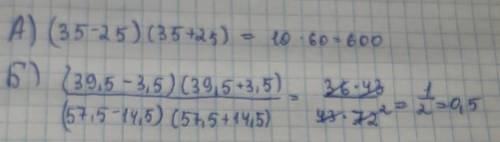 А) (35-25)(35+25) = 10·60=600
Б) (39,5-3,5)(39,5+3,5) / (57,5-14,5)(57,5+14,5) = 36·43 / 43·72 2 = 1/2 = 0,5